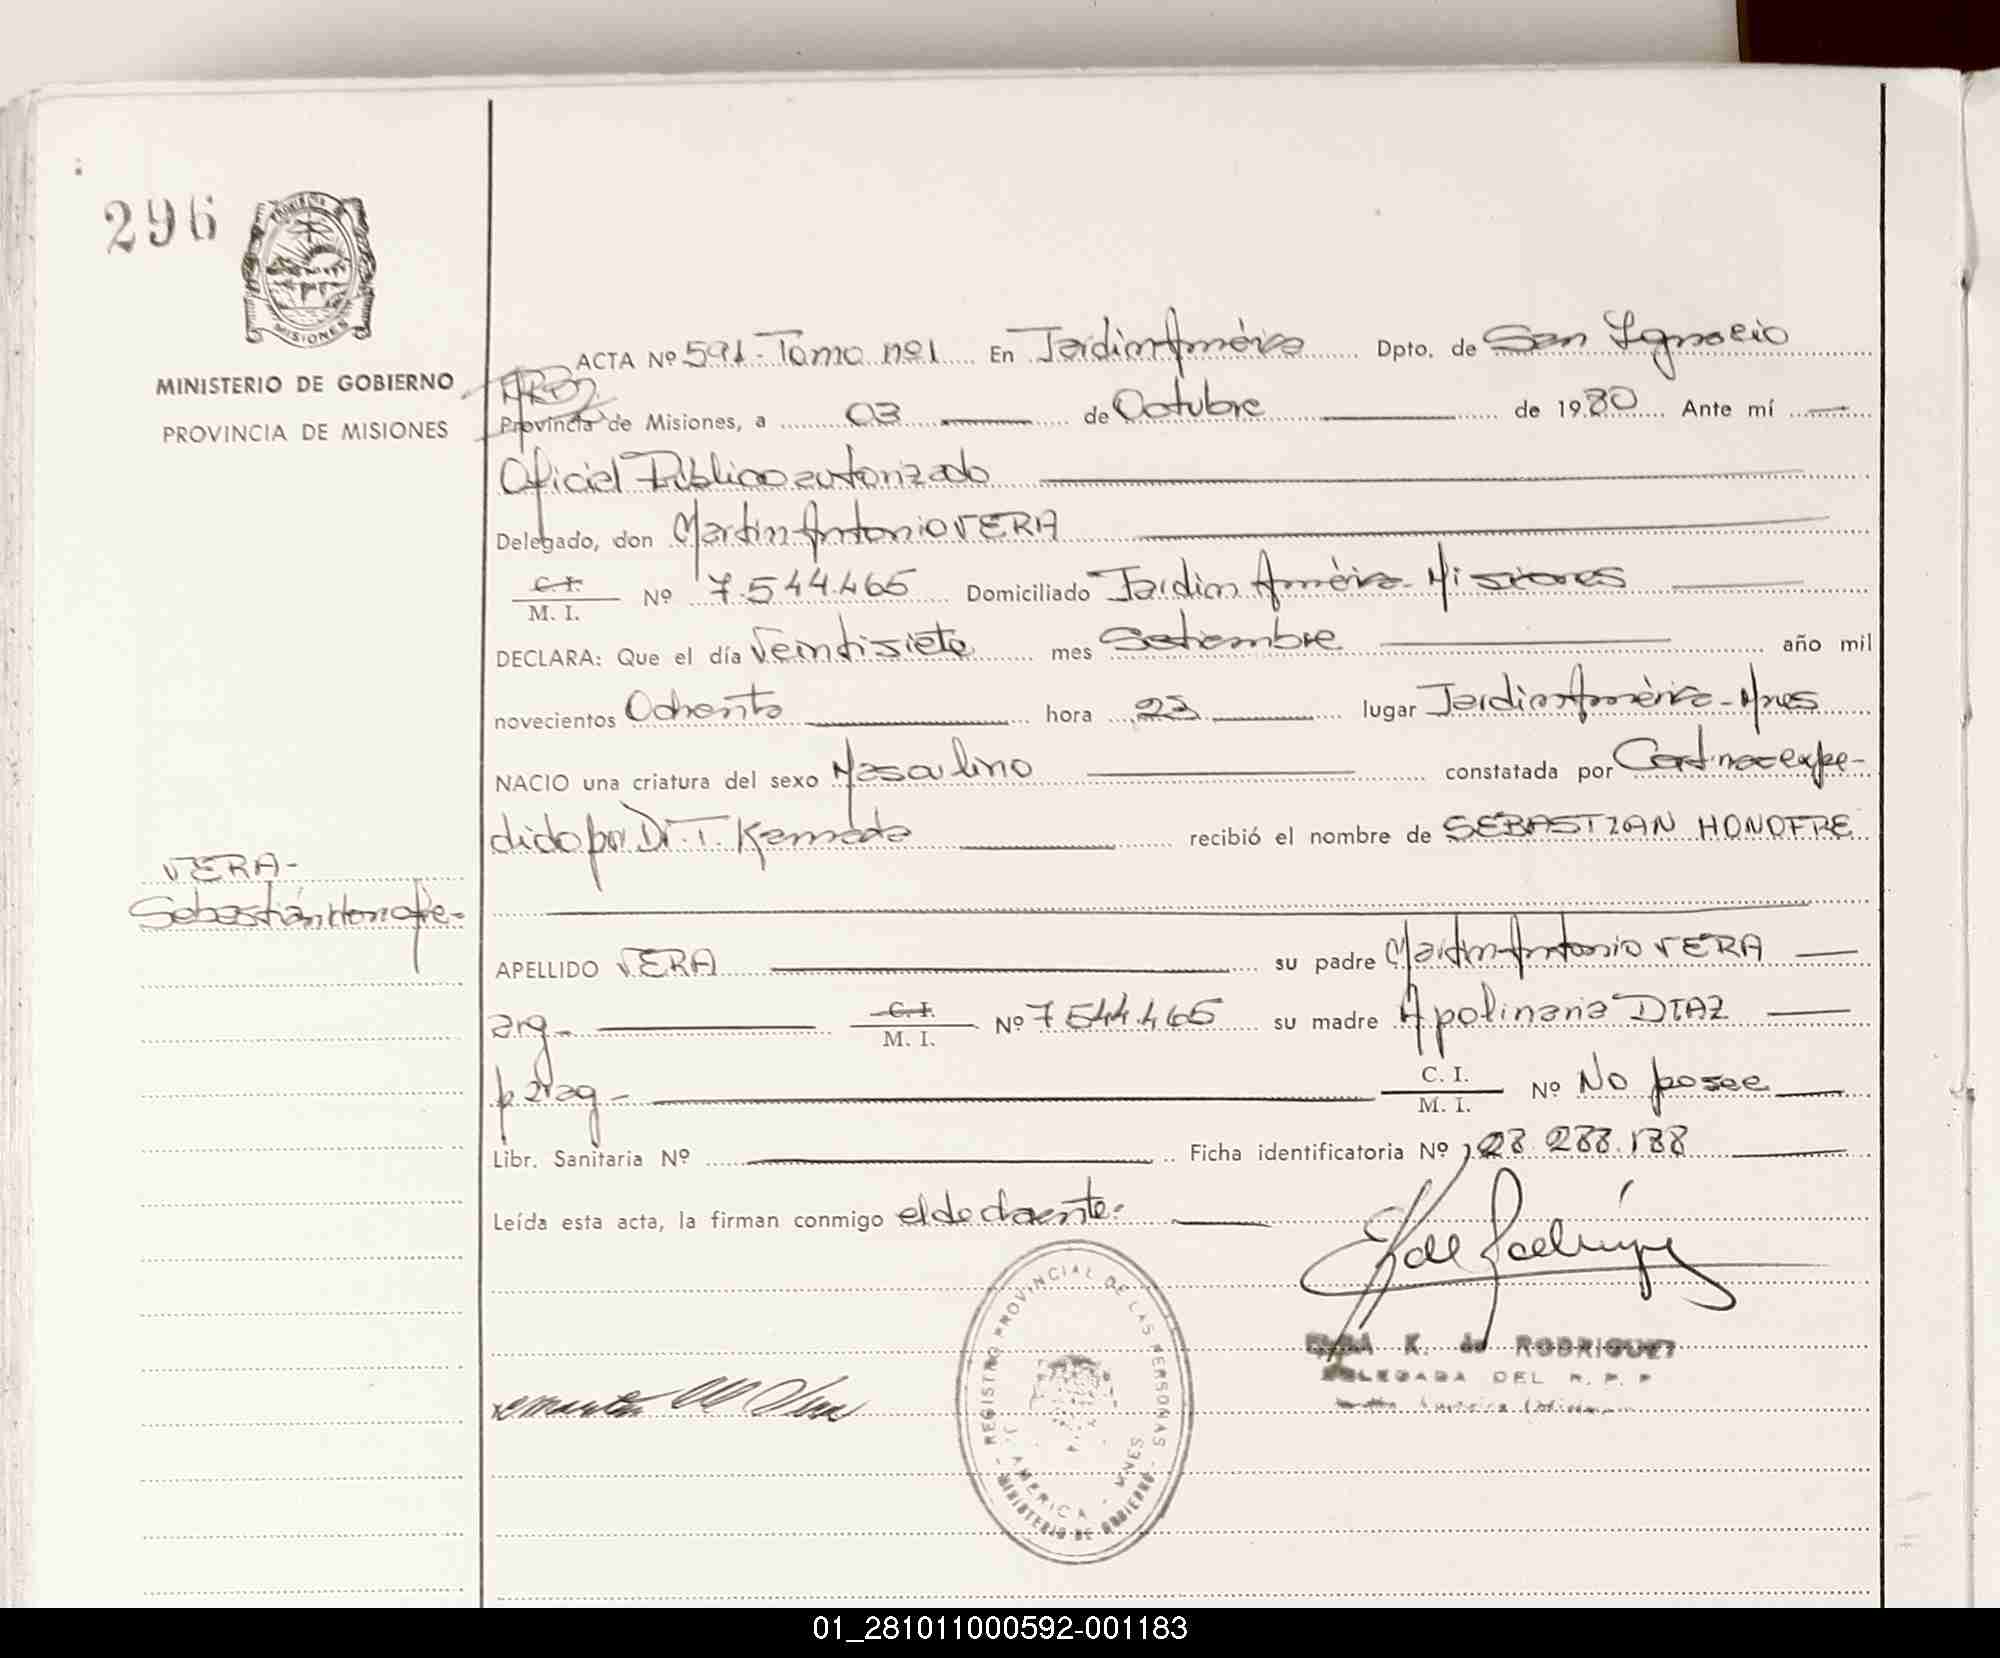 296
PROVINCIA
MISIONES
MINISTERIO DE GOBIERNO
PROVINCIA DE MISIONES
ACTA Nº 591- Tomo nº1 En Jardin América Dpto. de San Ignacio
Provincia de Misiones, a 03 de Octubre de 1980 Ante mí
Oficial Público autorizado
Delegado, don Martin Antonio VERA
C. I.
M. I. Nº 7.544.465 Domiciliado Jardin América- Misiones
DECLARA: Que el día Veintisiete mes Setiembre año mil
novecientos Ochenta hora 23 lugar Jardin América- Mnes
NACIO una criatura del sexo Masculino constatada por expe-
dido por Dr. T. recibió el nombre de SEBASTIAN HONOFRE
VERA-
Sebastián Honofre-
APELLIDO VERA su padre Martin Antonio VERA
arg- C. I.
M. I. Nº 7.544.465 su madre Apolinaria DIAZ
parag- C. I.
M. I. Nº No posee
Libr. Sanitaria Nº Ficha identificatoria Nº 28.288.188
Leída esta acta, la firman conmigo el declarante.
REGISTRO PROVINCIAL DE LAS PERSONAS
J. AMERICA - MNES
MINISTERIO DE GOBIERNO
K. de RODRIGUEZ
DELEGADA DEL R. P. P
01_281011000592-001183